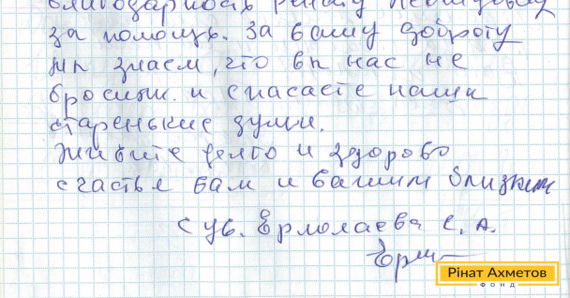 благодарность Ринату Леонидовичу
за помощь. За вашу доброту
мы знаем, что вы нас не
бросите. и спасаете наши
старенькие души.
Живите долго и здорово
счастье вам и вашим близким
С ув. Ермолаева С. А.
Рінат Ахметов
ФОНД